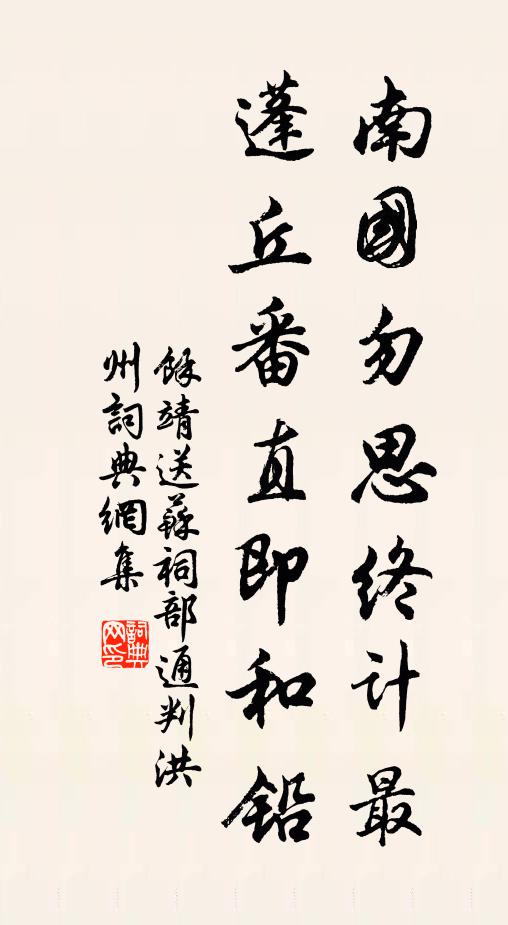 南國勿思終計最
蓬丘番直即和鉛
餘靖送蘇祠部通判洪
州詞典網集
詞典
网印